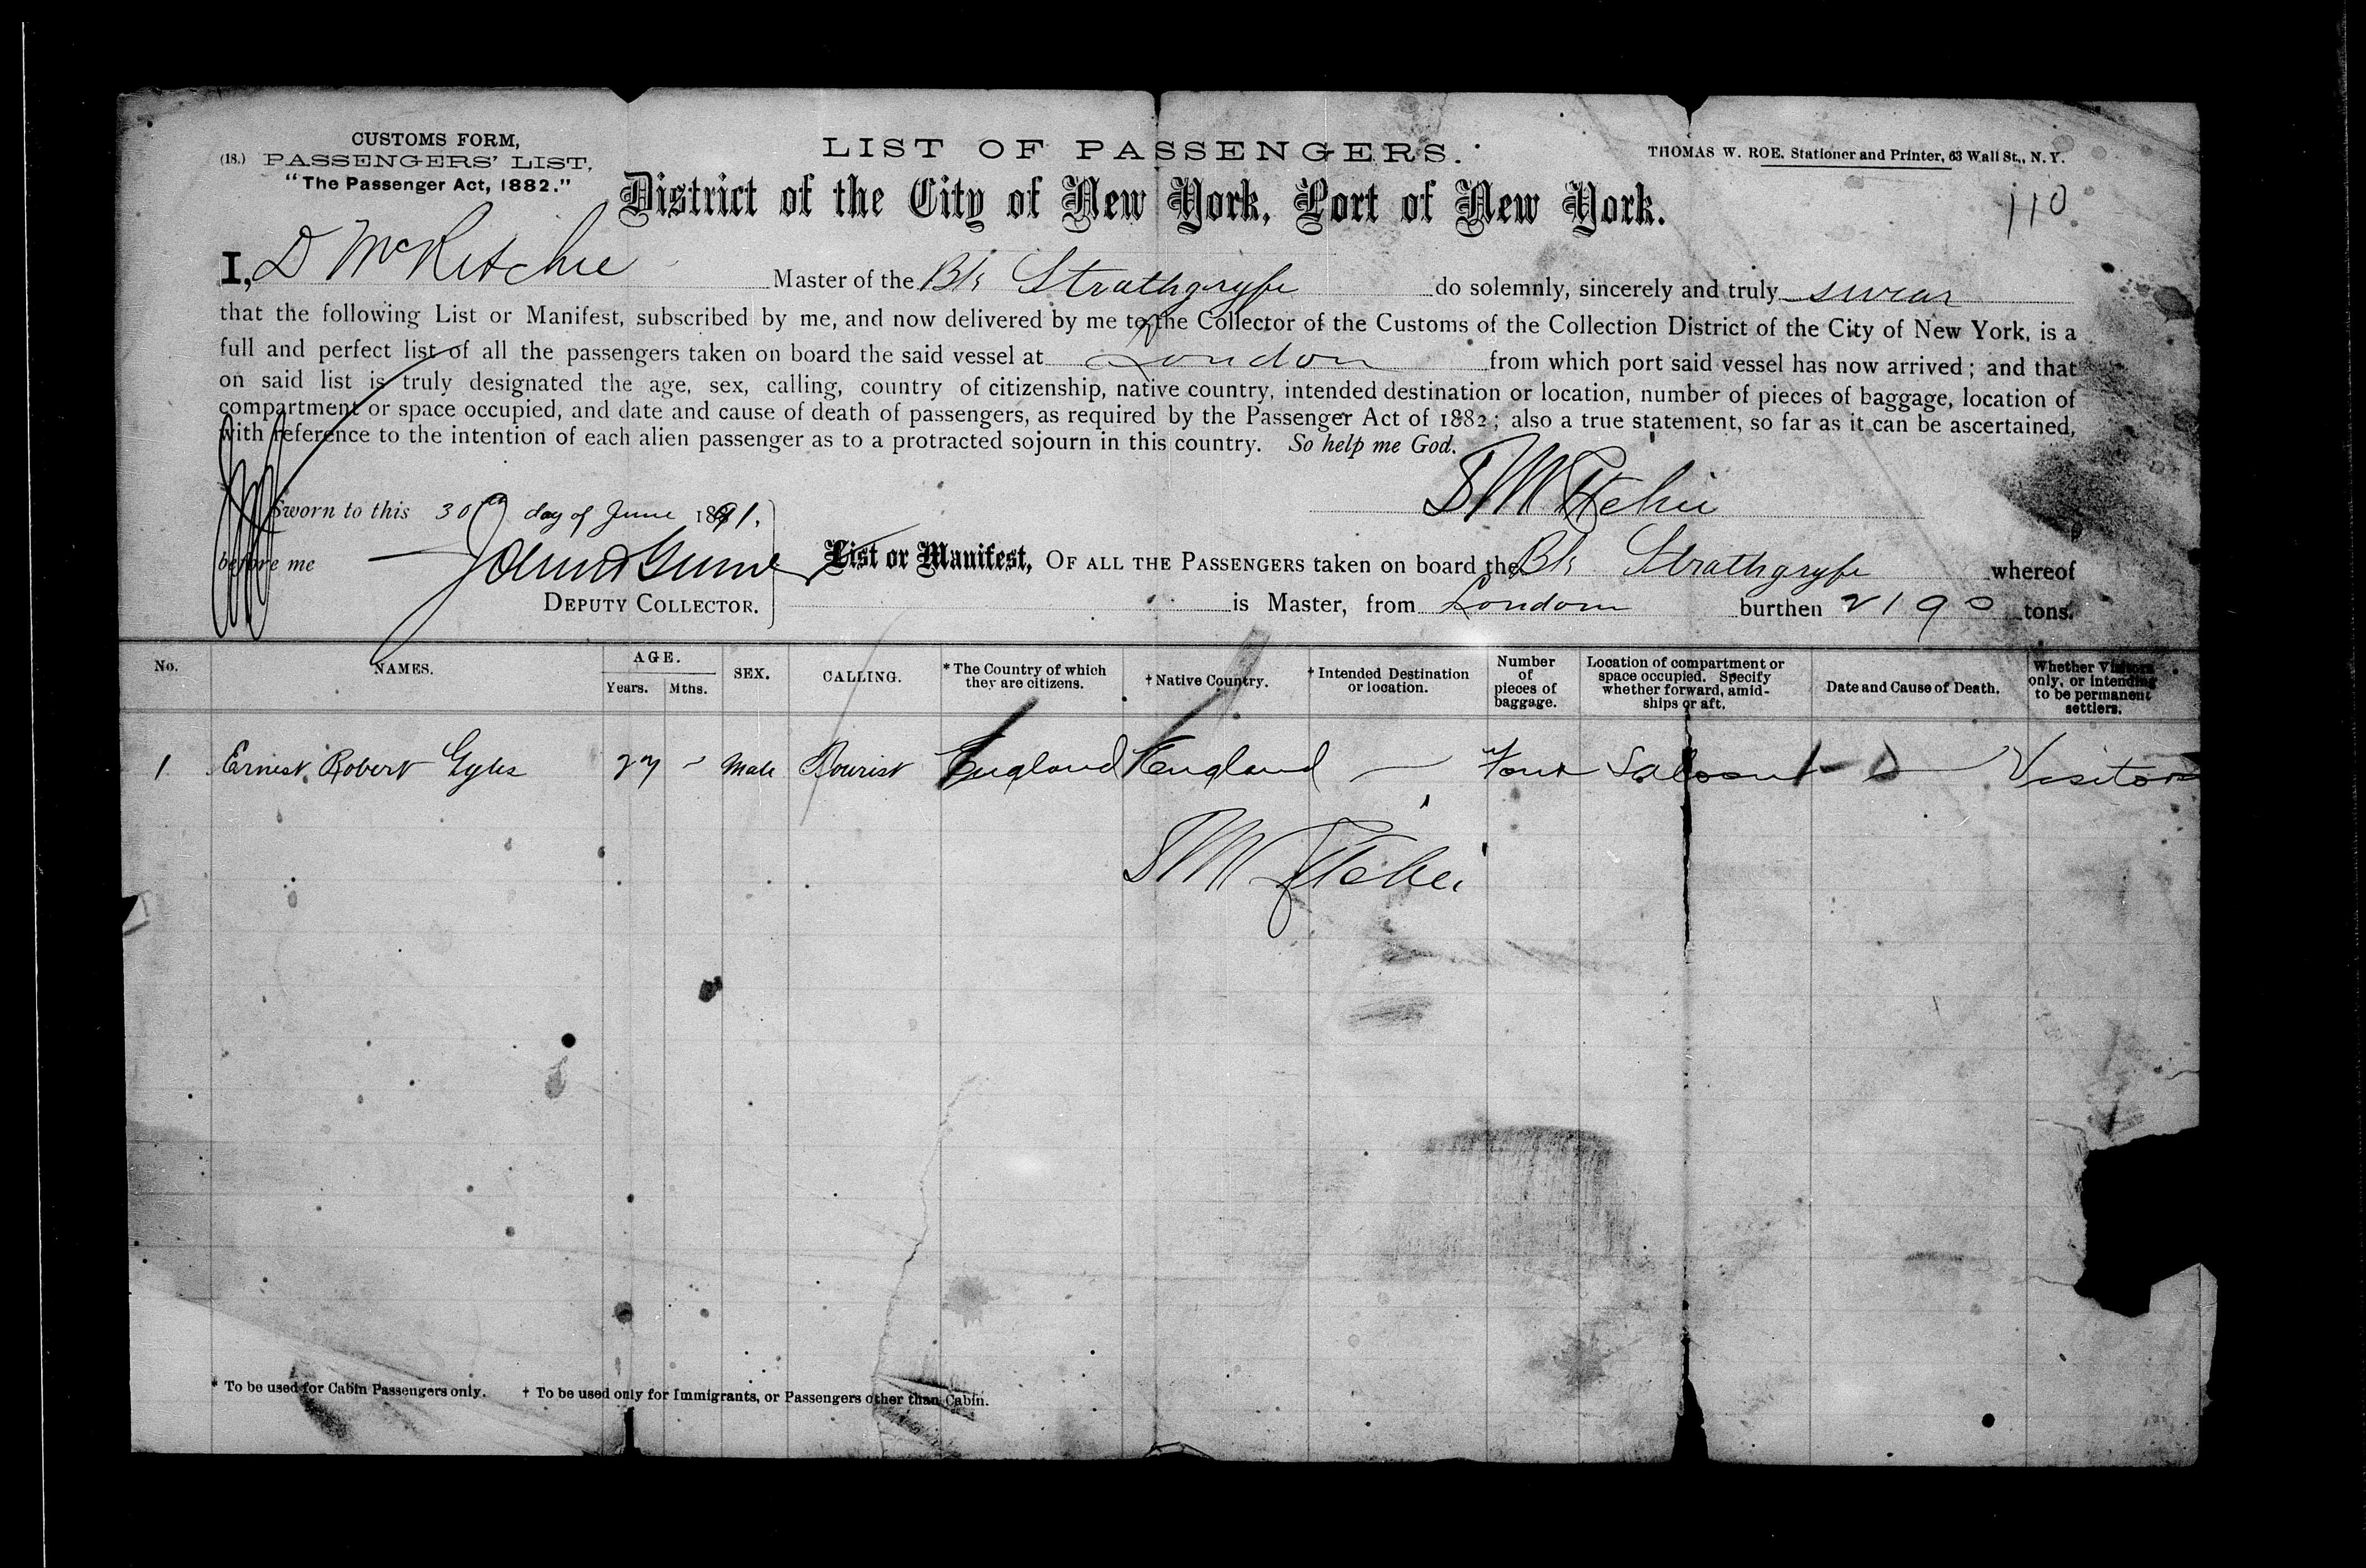 CUSTOMS FORM,
(18.) PASSENGERS' LIST,
"The Passenger Act, 1882."
LIST OF PASSENGERS.
THOMAS W. ROE, Stationer and Printer, 63 Wall St., N. Y.
District of the City of New York, Port of New York.
110
I, D McRitchie Master of the Bk Strathgryfe do solemnly, sincerely and truly swear
that the following List or Manifest, subscribed by me, and now delivered by me to the Collector of the Customs of the Collection District of the City of New York, is a
full and perfect list of all the passengers taken on board the said vessel at London from which port said vessel has now arrived; and that
on said list is truly designated the age, sex, calling, country of citizenship, native country, intended destination or location, number of pieces of baggage, location of
compartment or space occupied, and date and cause of death of passengers, as required by the Passenger Act of 1882; also a true statement, so far as it can be ascertained,
with reference to the intention of each alien passenger as to a protracted sojourn in this country. So help me God.
Sworn to this 30th day of June 1891.
before me
DEPUTY COLLECTOR.
List or Manifest, OF ALL THE PASSENGERS taken on board the Bk Strathgryfe whereof
is Master, from London burthen 2190 tons.
No. NAMES. AGE. Years. Mths. SEX. CALLING. * The Country of which they are citizens. † Native Country. † Intended Destination or location. Number of pieces of baggage. Location of compartment or space occupied. Specify whether forward, amidships or aft. Date and Cause of Death. Whether Visitors only, or intending to be permanent settlers.
1 Ernest Robert Gyles 27 - Male Tourist England England — Four Saloon — Visitor
* To be used for Cabin Passengers only. † To be used only for Immigrants, or Passengers other than Cabin.